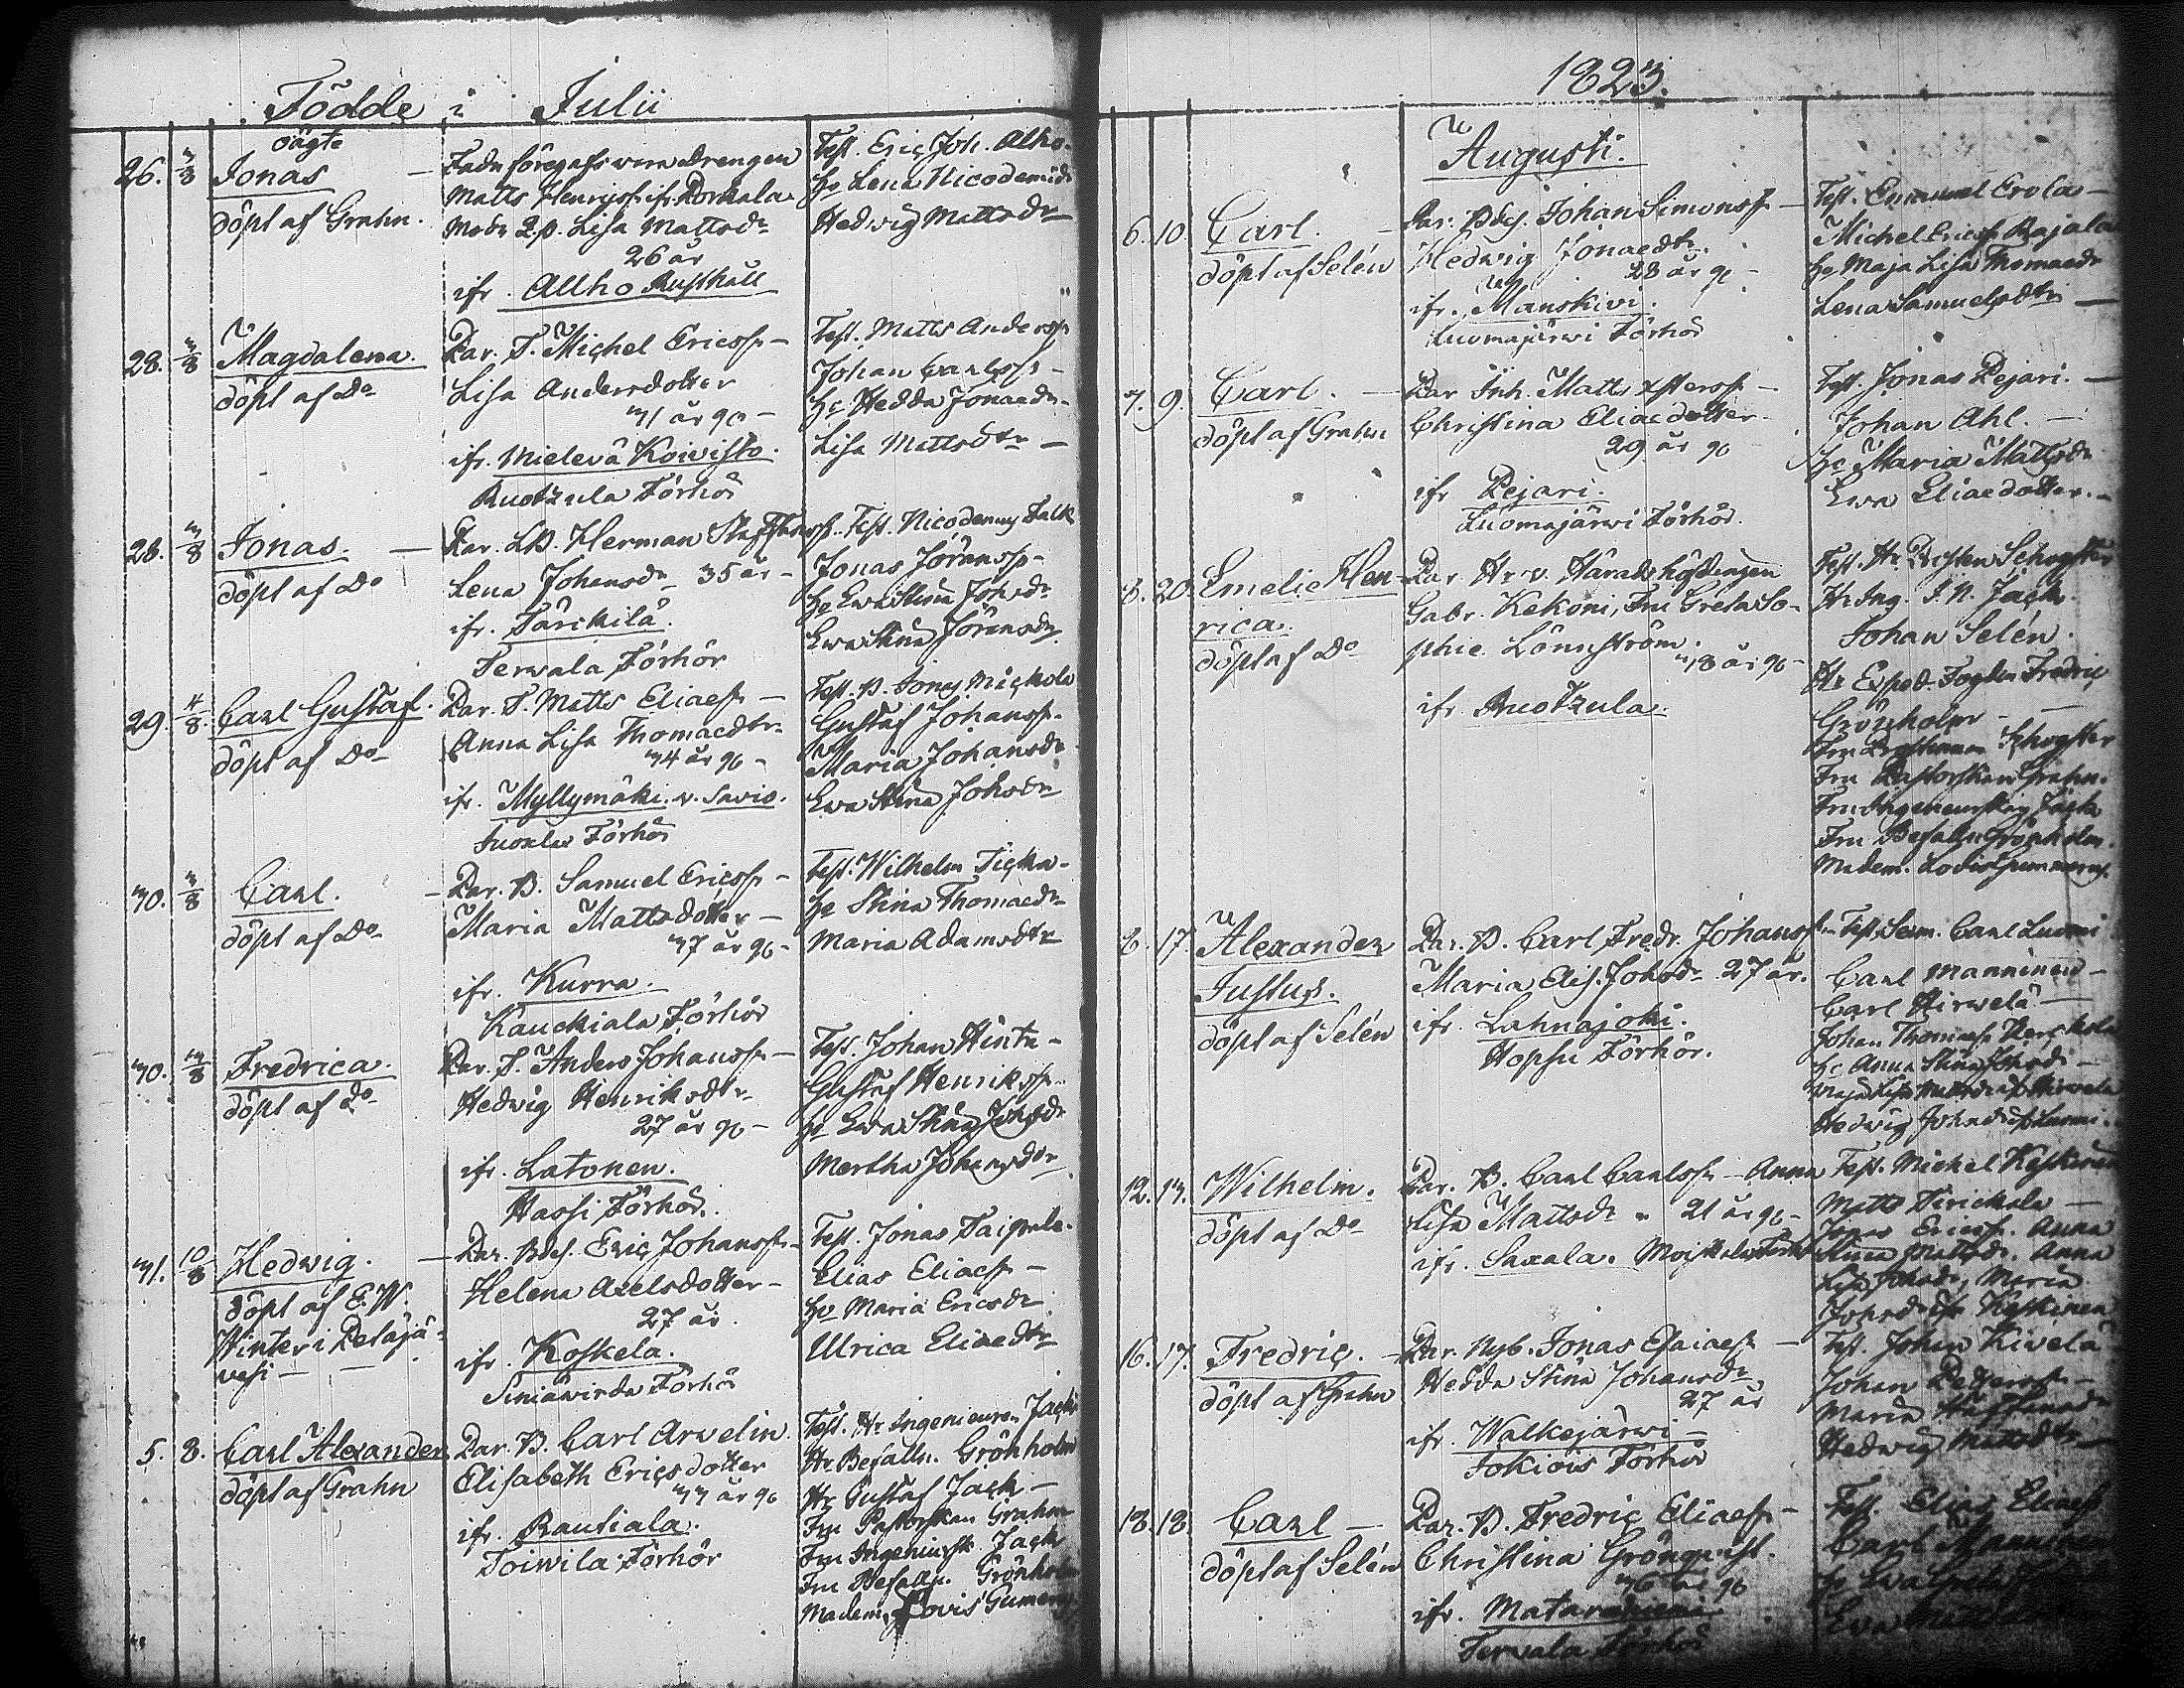 Födde i Julii
26. 3/8 oägte
Jonas —
döpt af Grahn.
Fadn föregafs wara Drengen
Matts Henricss. ifr. Porkala
Modr Q.p. Lisa Mattsdr
26 år
ifr. Allho Rusthåll
Test. Eric Joh. Alho.
hu Lena Nicodemidr
Hedvig Mattsdr
28. 3/8 Magdalena.
döpt af Do
Par. T. Michel Ericss. —
Lisa Andersdotter
31 år ga —
ifr. Mielevä Koivisto.
Ruotzula Förhör
Test. Matts Anderss.
Johan Carlss. —
hu Hedda Jonaedr
Lisa Mattsdtr —
28. 3/8 Jonas. —
döpt af Do
Par. LB. Herman Staffanss.
Lena Johansdr 35 år —
ifr. Tärikilä.
Terwala Förhör
Test. Nicodemus Falk
Jonas Jöranss. —
hu Ewa Stina Johsdr
Ewa Stina Jöransdr
29. 4/8. Carl Gustaf.
döpt af Do
Par. T. Matts Eliaess. —
Anna Lisa Thomaedtr
34 år ga —
ifr. Myllymäki. v. Savio.
Suoxla Förhör
Test. B. Jonas Mickola
Gustaf Johanss.
Maria Johansdr
Ewa Stina Johsdr
30. 3/8 Carl.
döpt af Do
— Par. B. Samuel Ericss. —
Maria Mattsdotter —
37 år ga —
ifr. Kurra.
Kauckiala Förhör
Test. Wilhelm Ticka —
hu Stina Thomaedr
Maria Adamsdtr
30. 3/8 Fredrica.
döpt af do
Par. T. Anders Johanss. —
Hedwig Henriksdtr
27 år ga —
ifr. Latonen.
Hassi Förhör.
Test. Johan Hintu —
Gustaf Henrikss.
hu Ewa Stina Johsdr
Mertha Johansdr
31. 10/8 Hedwig. —
döpt af E. W.
Winter i Petäjä-
vesi —
Par. Bds. Eric Johanss. —
Helena Axelsdotter —
27 år.
ifr. Koskela.
Siniäwirda Förhör
Test. Jonas Taipale.
Elias Eliaess. —
hu Maria Ericsdr
Ulrica Eliaedtr
5. 8. Carl Alexander
döpt af Grahn
Par. B. Carl Arvelin
Elisabeth Ericsdotter
33 år ga
ifr. Rautiala.
Toiwila Förhör
Test. Hr Ingenieuren Jack
Hr Befalln. Grönholm
Hr Gustaf Jack —
Fru Pastorskan Grahn
Fru Ingenieursk. Jack
Fru Befalln. Grönholm
Madem. Lovis Gumerus
1823.
Augusti.
6. 10. Carl. —
döpt af Selén
Par. Bds. Johan Simonss. —
Hedwig Jonaedtr.
28 år ga —
ifr. Manskivi.
Luomajärwi Förhör
Test. Emanuel Erola —
Michel Ericss. Rajala
hu Maja Lisa Thomaedr
Lena Samuelsdtr —
7. 9. Carl. —
döpt af Grahn
Par Inh. Matts —
Christina Eliaedotter
29 år ga
ifr Pejari.
Luomajärwi Förhör.
Test. Jonas Pejari. —
Johan Ahl. —
hu Maria Mattsdr
Ewa Eliaedotter. —
8. 20. Emelie Hen-
rica.
döpt af Do
Par. Hr v. Häradshöfdingen
Gabr. Kekoni, Fru Greta So-
phie Lönnström.
38 år ga —
ifr. Ruotzula.
Test. Hr Prosten Schogster
Hr Ing. J. N. Jack.
Johan Selén.
Hr Exped. Fogden Fredric
Grönholm —
Fru Prostinnan Schogster
Fru Pastorskan Grahn.
Fru Ingenieurskan Jack
Fru Befalln Grönholm.
Madem. Lovis Gummerus.
8. 17. Alexander
Justus.
döpt af Selén
Par. B. Carl Fredr. Johanss.
Maria Elis. Johsdr 27 år.
ifr. Lahnajoki.
Hopsu Förhör.
Test. Sexm. Carl Luomi
Carl Manninen —
Carl Hirwelä —
Johan Thomass.
hu Anna Stina Johsdr —
Maja Lisa Mattsdr Hirwelä
Hedwig Johsdr Luomi.
12. 13. Wilhelm.
döpt af Do
Par. B. Carl Carlss. — Anna
Lisa Mattsdr 21 år ga —
ifr. Saxala. Moiskala Förhör
Test. Michel Keskinen
Matts Tirickola —
Jonas Ericss. Anna
Stina Mattsdr. Anna
Lisa Johsdr, Maria
Johsdr ifr Keskinen
16. 17. Fredric. —
döpt af Grahn
Par. Nyb. Jonas Esaiaess. —
Hedda Stina Johansdr
27 år
ifr. Walkejärwi —
Jokiois Förhör
Test. Johan Kivelä
Johan Petterss. —
Maria Staffansdr
Hedwig Mattsdtr —
18. 18. Carl —
döpt af Selén
Par. B. Fredric Eliaess. —
Christina Grönqvist.
36 år ga
ifr.
Terwala Förhör
Test. Elias Eliaess
Carl Manninen
hu Ewa
Ewa